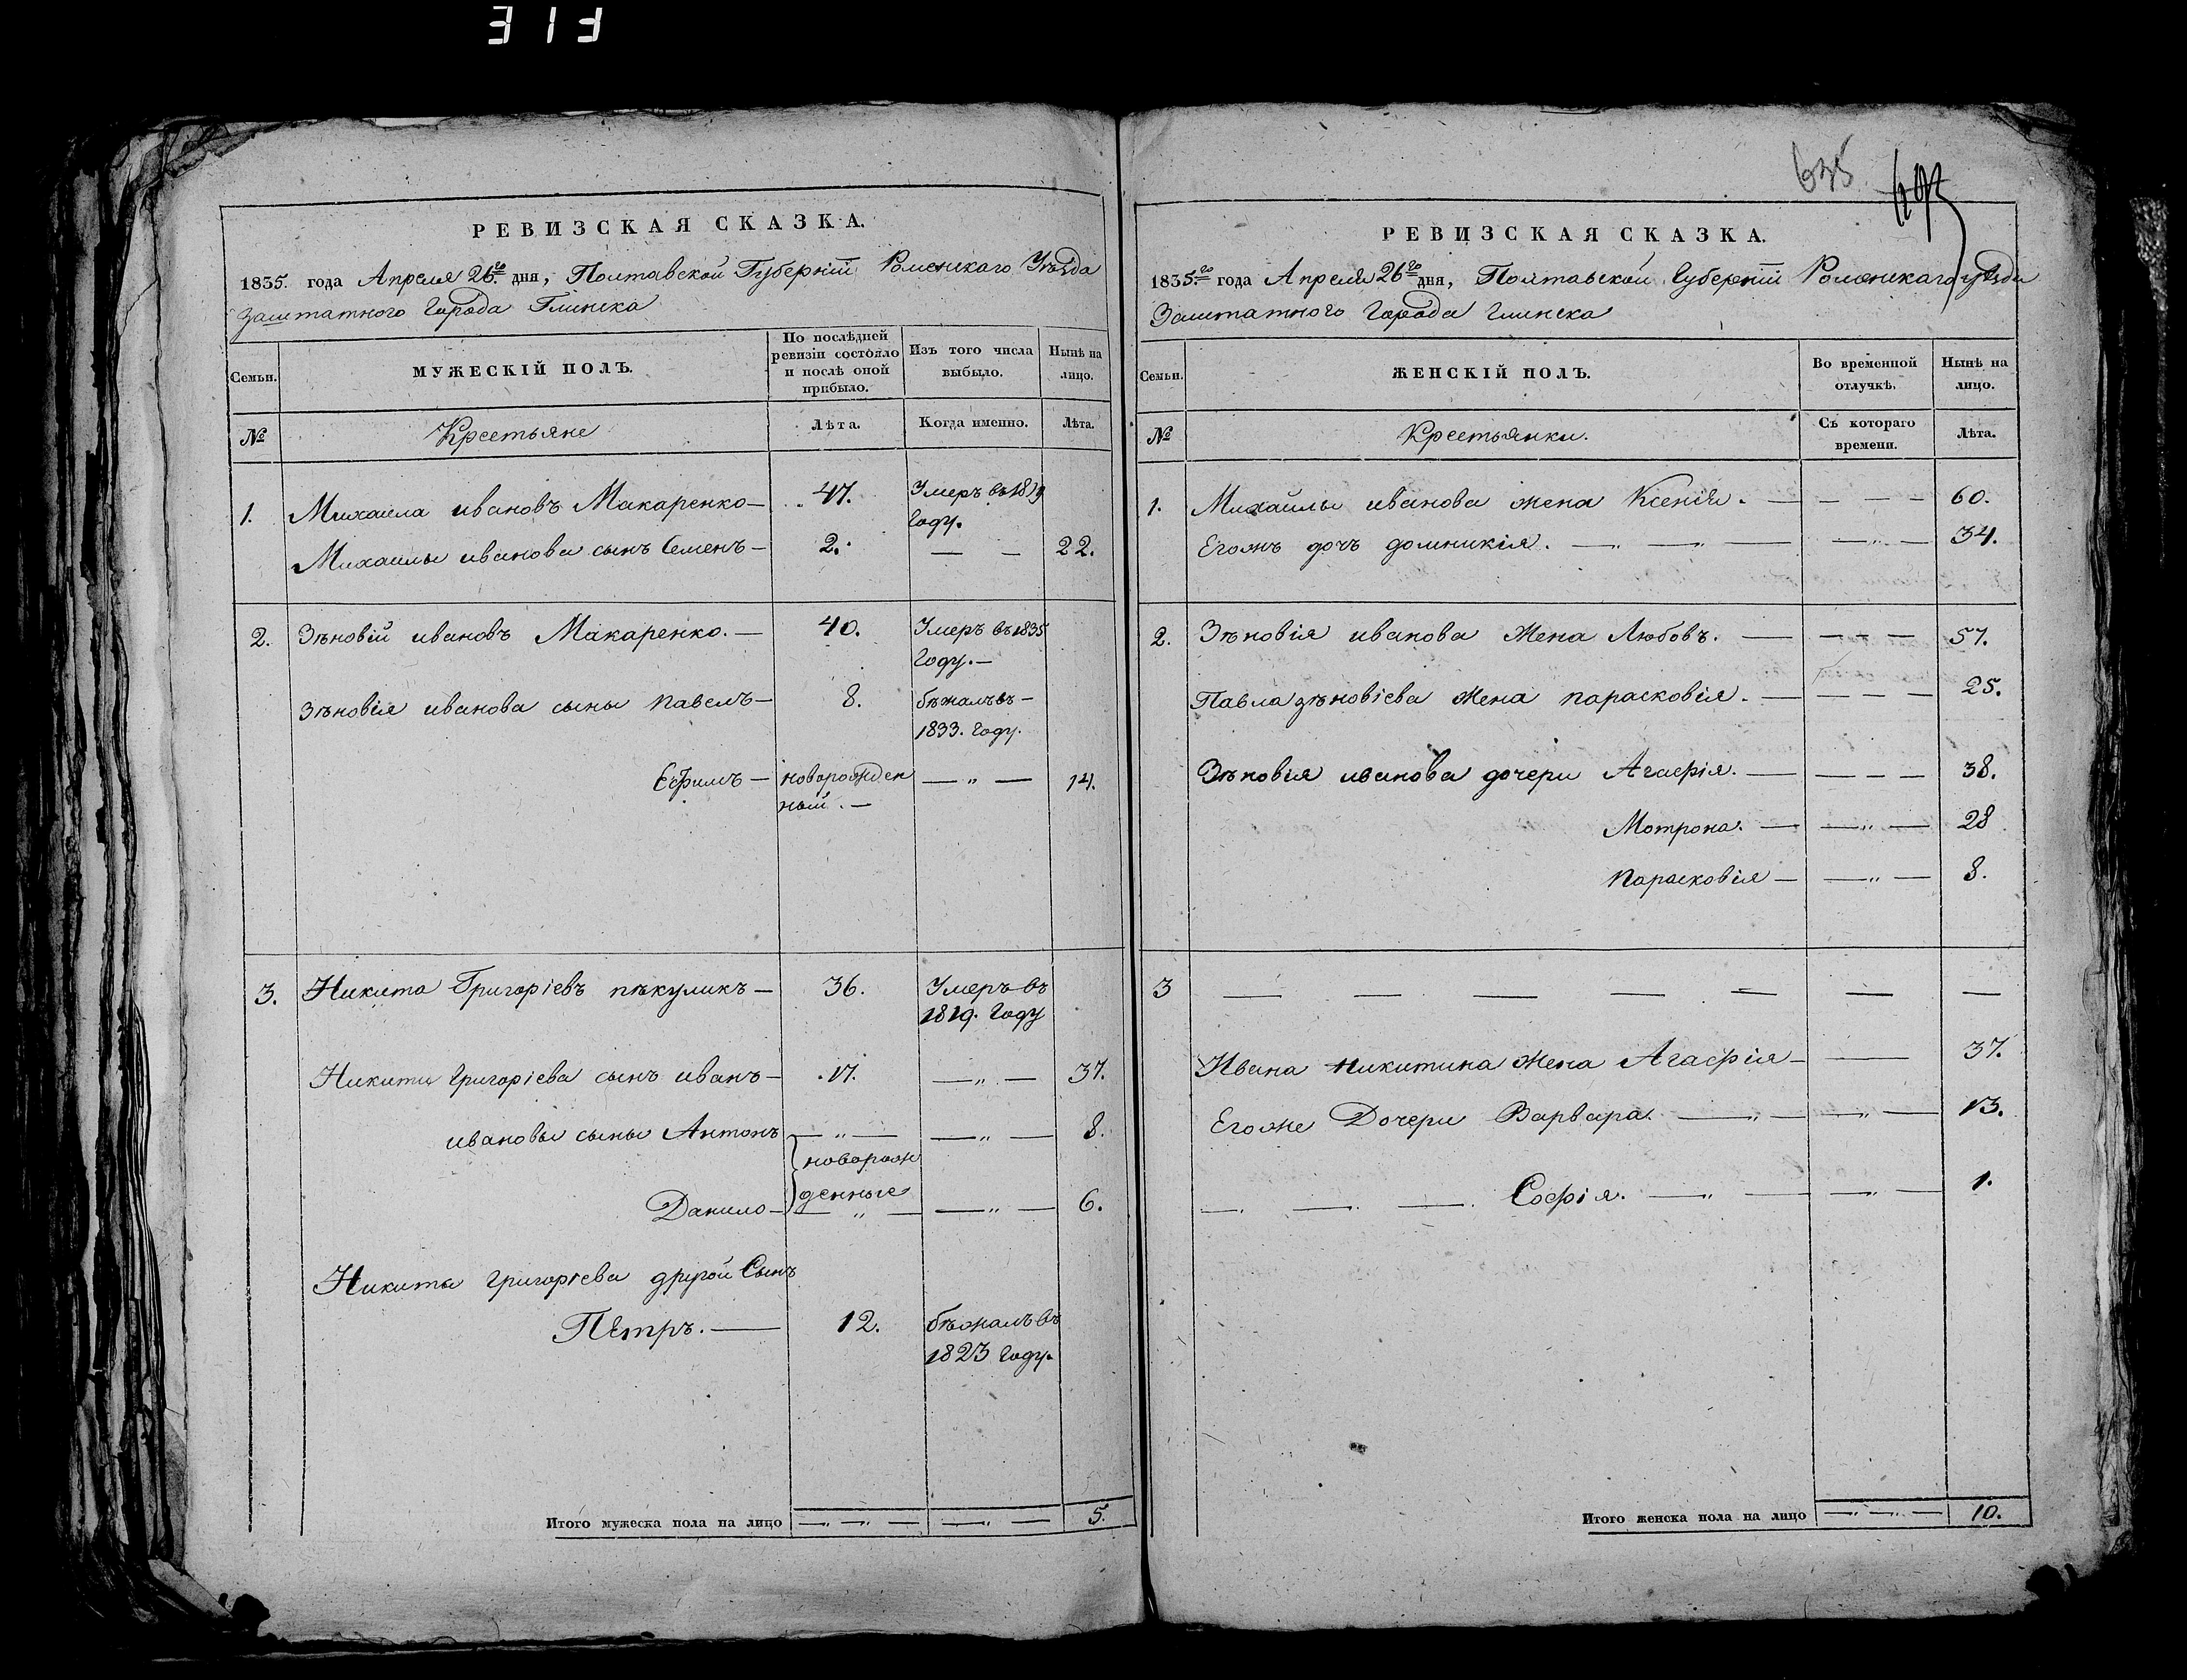 313
РЕВИЗСКАЯ СКАЗКА.
1835. года Апреля 26го дня, Полтавской Губерніи Роменскаго Уѣзда
Заштатного Города Глинска
Семьи.
МУЖЕСКІЙ ПОЛЪ.
По послѣдней ревизіи состояло и послѣ оной прибыло.
Изъ того числа выбыло.
Нынѣ на лицо.
№
Крестьяне
Лѣта.
Когда именно.
Лѣта.
1. Михаила ивановъ Макаренко — 47. Умеръ въ 1819 Году.
Михаилы иванова сынъ Семенъ — 2. — — 22.
2. Зѣновій ивановъ Макаренко. — 40. Умеръ въ 1835 Году. —
Зѣновія иванова сыны павелъ — 8. бѣжалъ въ — 1833. Году.
Ефимъ — новорожден ный. — — „ — 14.
3. Никита Григоріевъ пѣкуликъ — 36. Умеръ въ 1819. Году
Никиты Григоріева сынъ иванъ — 17. — „ — 37.
ивановы сыны Антонъ — „ — — „ — 8.
новорож
денные
Данило — — „ — — „ — 6.
Никиты григорѣева другой Сынъ
Пётръ. — 12. бѣжалъ въ 1823 Году.
Итого мужеска пола на лицо — „ — „ — — „ — 5.
635
РЕВИЗСКАЯ СКАЗКА.
1835.го года Апреля 26го дня, Полтавской Губерніи Роменскаго уѣзда
Заштатного Города глинска
Семьи.
ЖЕНСКІЙ ПОЛЪ.
Во временной отлучкѣ.
Нынѣ на лицо.
№
Крестьянки.
Съ котораго времени.
Лѣта.
1. Михайлы иванова жена Ксенія. — — — — 60.
Егожъ дочъ домникія. — „ — „ — — „ — 34.
2. Зѣновія иванова Жена Любовъ. — — — — 57.
Павла зѣновіева Жена парасковія. — — — — 25.
Зѣновія иванова дочери Агафія. — — — — 38.
Мотрона. — — „ — 28
Парасковія — — „ — 8.
3 — — — — — — —
Ивана Никитина Жена Агафія — — 37.
Егоже Дочери Варвара. — „ — — „ — 13.
— . — . — . Софія. — „ — — „ — 1.
Итого женска пола на лицо — „ — „ — 10.